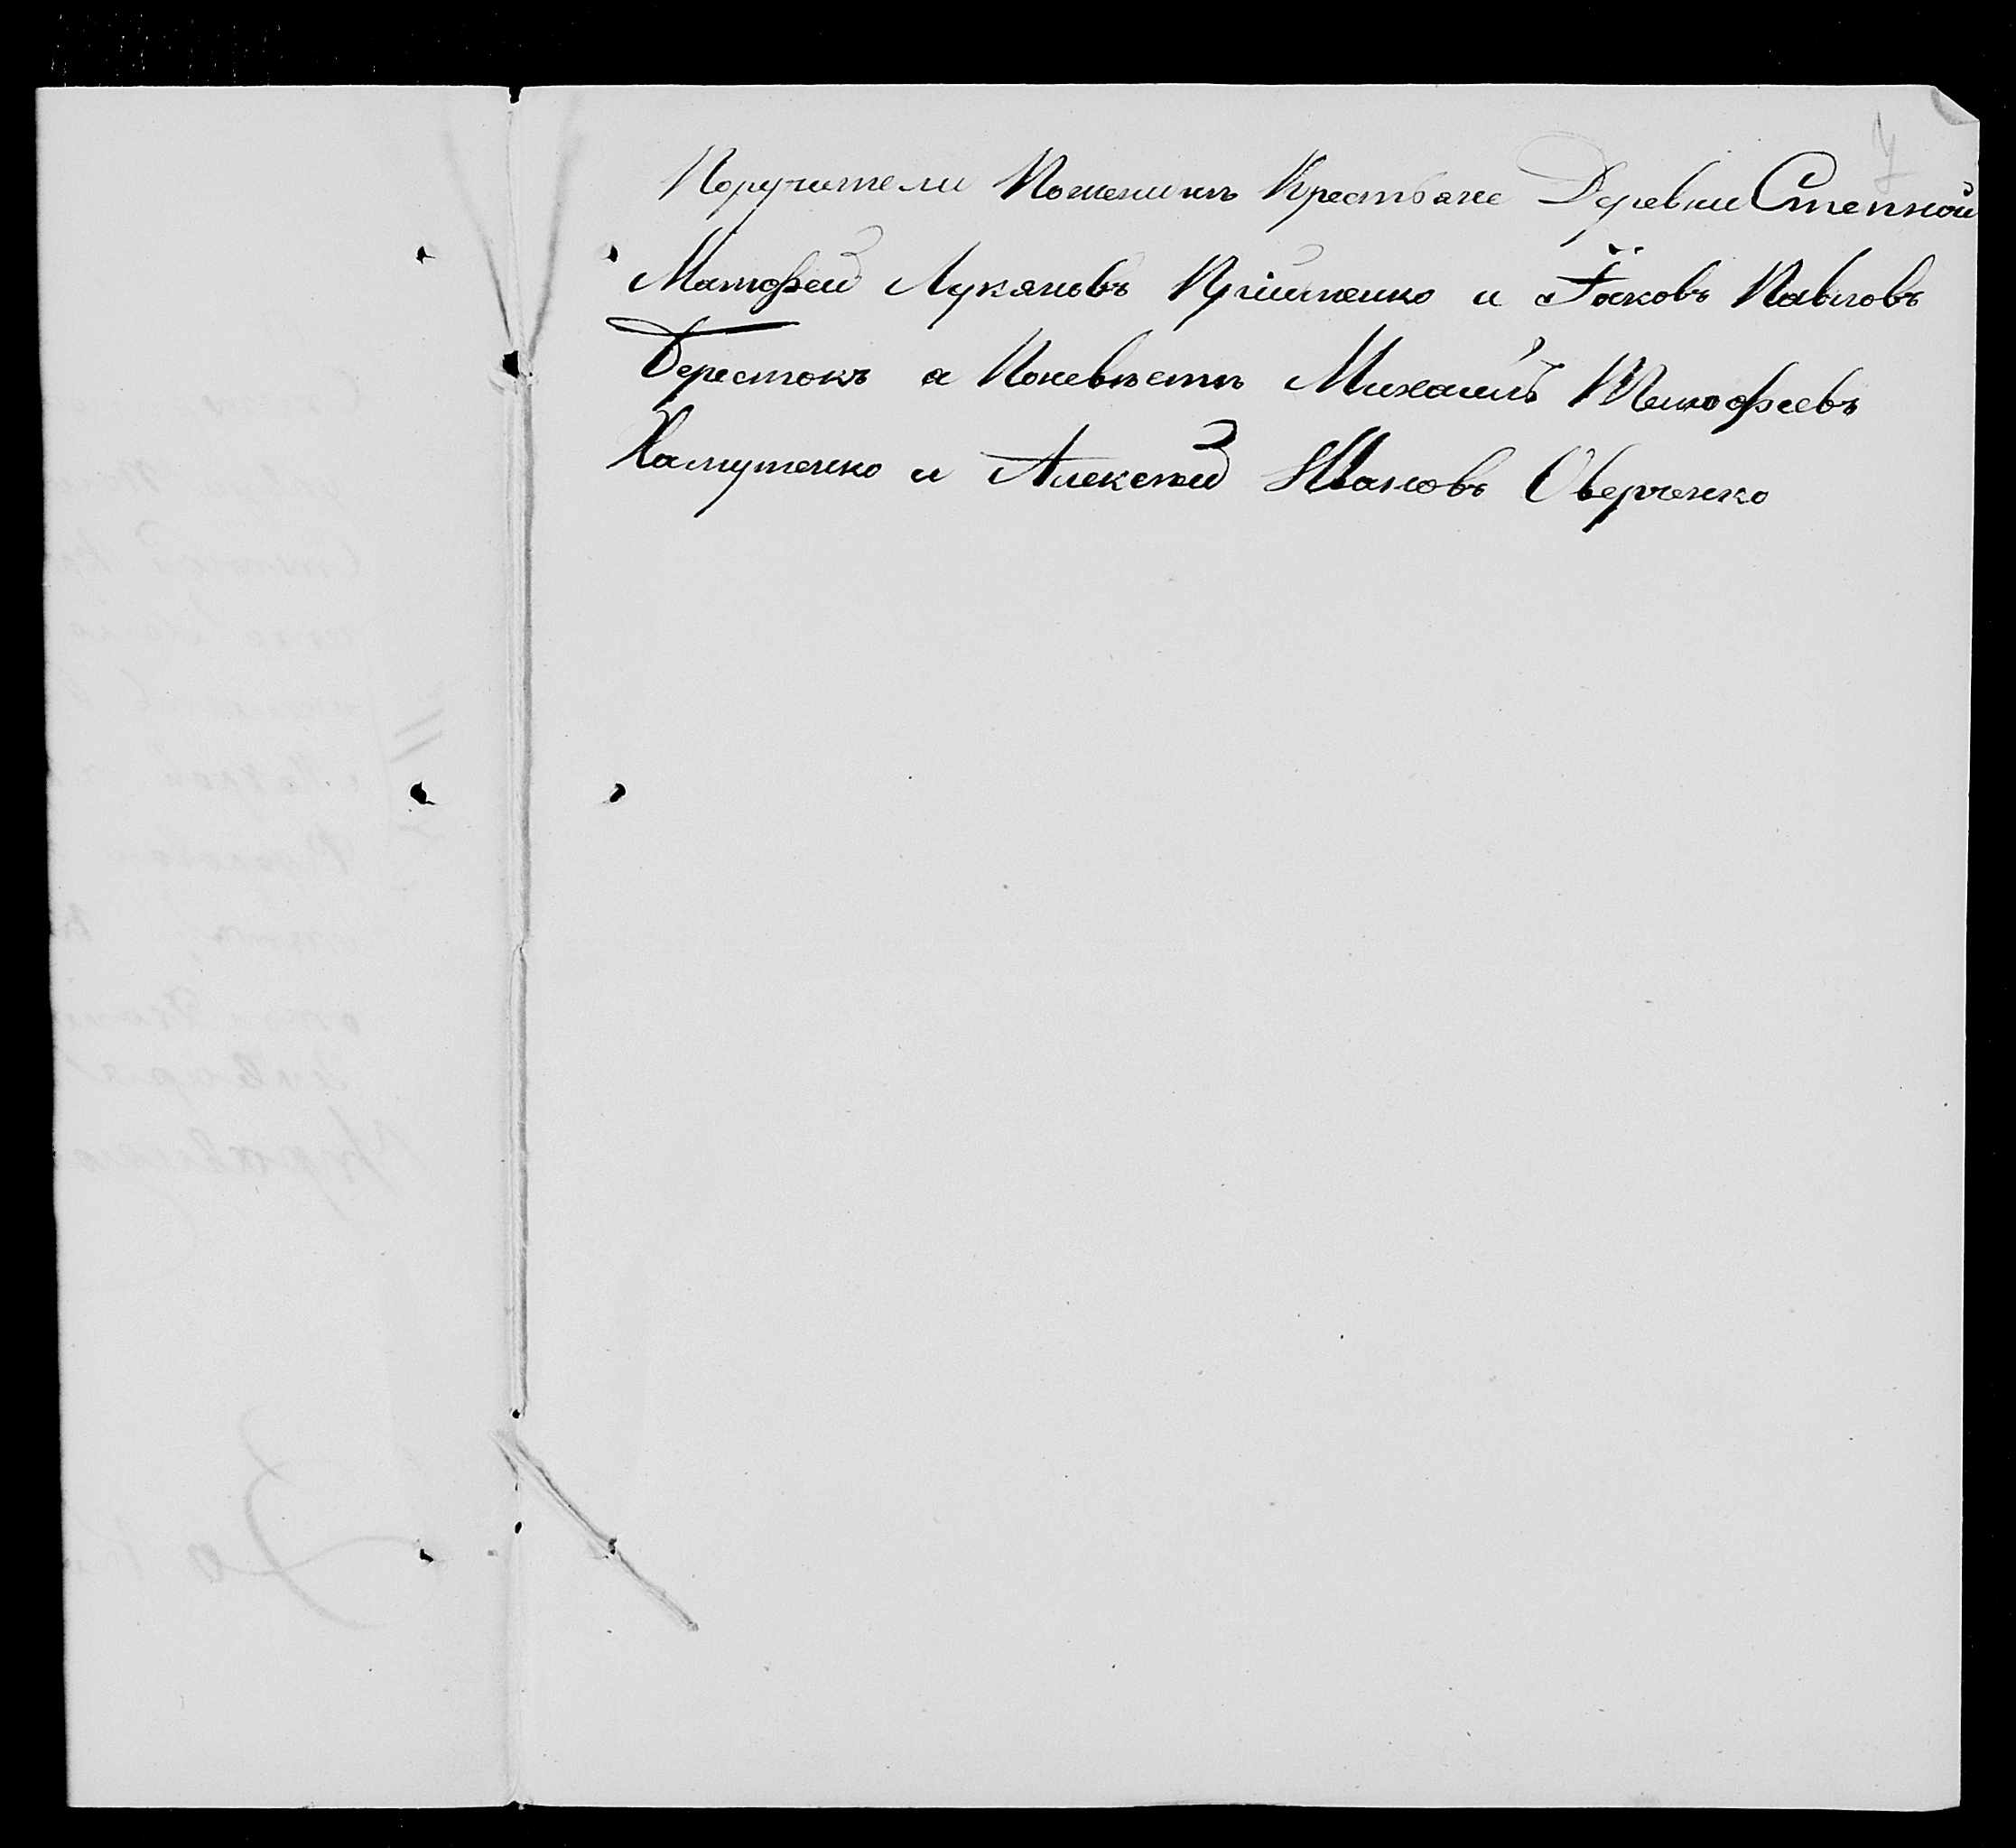 Поручители Поженихѣ Крестьяне Деревни Степной
Матѳей Лукяновъ и Іаковъ Павловъ
Берестокъ а Поневѣстѣ Михаилъ Тимофеевъ
Хамутенко и Алексѣй Ивановъ Оверченко